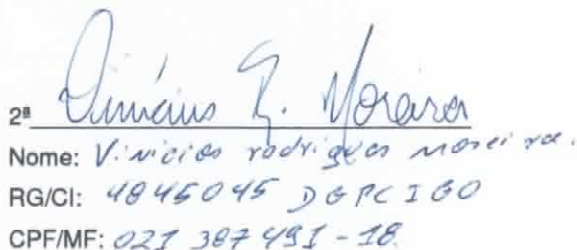 2ª Vinícius R. Moreira
Nome: Vinicios rodrigues moreira.
RG/CI: 4845045 DGPCIGO
CPF/MF: 021 387 491-18